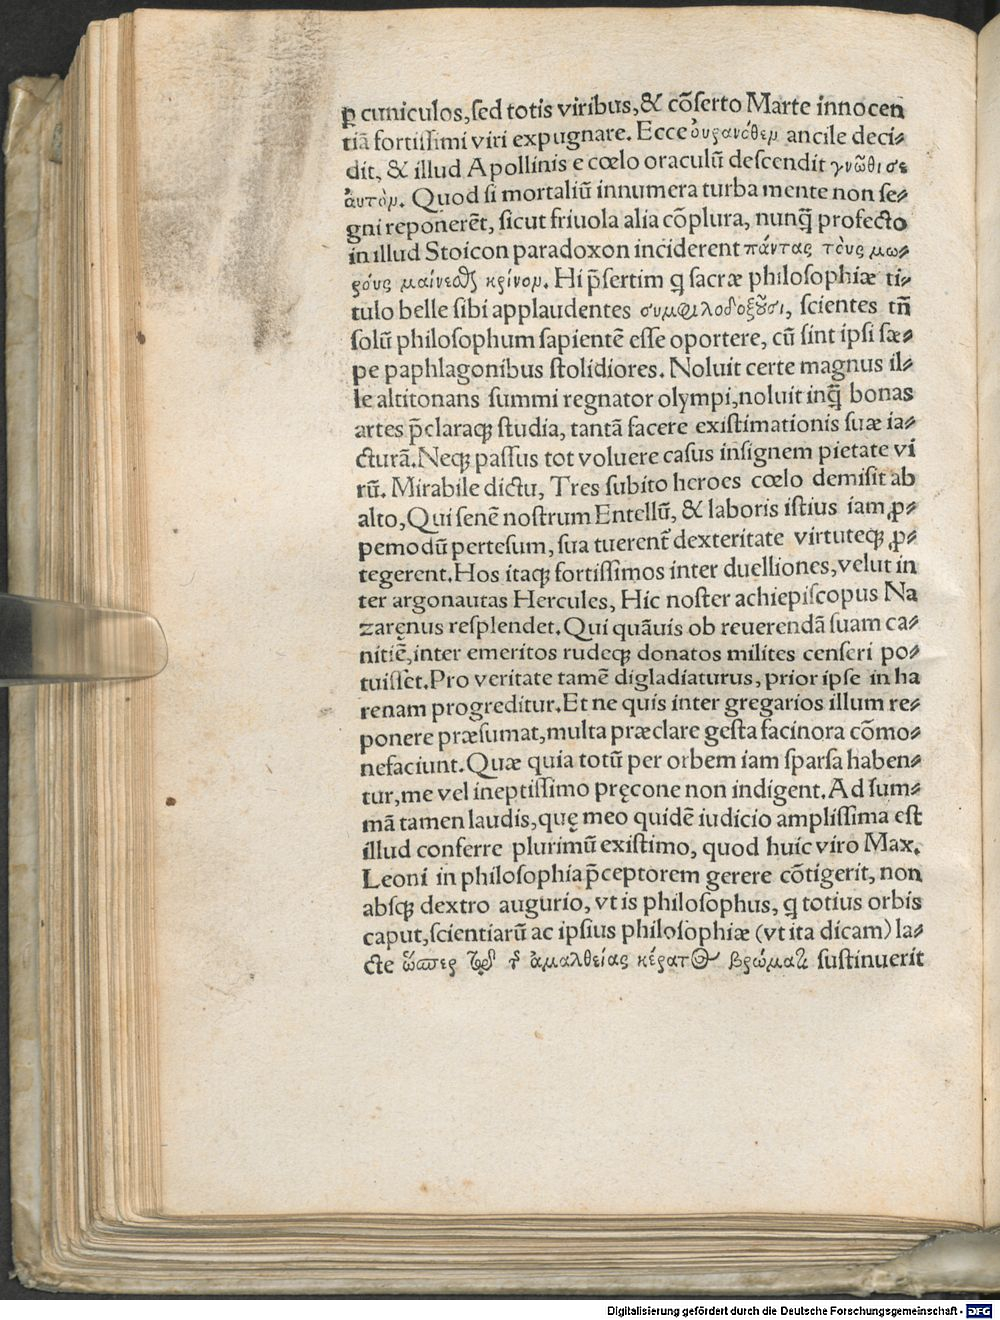 ꝑ cuniculos,ſed totis viribus,& cõſerto Marte innocen
tiã fortiſſimi viri expugnare. Ecce ὀυρανόθεμ ancile deci⸗
dit, & illud Apollinis e cœlo oraculũ deſcendit γνῶθι σε
ἀυτὸμ. Quod ſi mortaliũ innumera turba mente non ſe⸗
gni reponerẽt, ſicut friuola alia cõplura, nunq̃ profecto
in illud Stoicon paradoxon inciderent πάντας τὸυς μω⸗
ρόυς μαίνεσθαι κρίνομ. Hi p̃ſertim q ſacræ philoſophiæ ti⸗
tulo belle ſibi applaudentes συμφιλοδοξȣ͂σι, ſcientes tñ
ſolũ philoſophum ſapientẽ eſſe oportere, cũ ſint ipſi ſæ⸗
pe paphlagonibus ſtolidiores. Noluit certe magnus il⸗
le altitonans ſummi regnator olympi,noluit inq̃ bonas
artes p̃claraqꝫ ſtudia, tantã facere exiſtimationis ſuæ ia⸗
cturã.Neqꝫ paſſus tot voluere caſus inſignem pietate vi
rũ. Mirabile dictu, Tres ſubito heroes cœlo demiſit ab
alto,Qui ſenẽ noſtrum Entellũ, & laboris iſtius iam ꝓ⸗
pemodũ perteſum, ſua tuerent̃ dexteritate virtuteqꝫ ꝓ⸗
tegerent.Hos itaqꝫ fortiſſimos inter duelliones,velut in
ter argonautas Hercules, Hic noſter achiepiſcopus Na
zaręnus reſplendet.Qui quãuis ob reuerendã ſuam ca⸗
nitiẽ,inter emeritos rudeqꝫ donatos milites cenſeri po⸗
tuiſſet.Pro veritate tamẽ digladiaturus, prior ipſe in ha
renam progreditur.Et ne quis inter gregarios illum re⸗
ponere præſumat,multa præclare geſta facinora cõmo⸗
nefaciunt.Quæ quia totũ per orbem iam ſparſa haben⸗
tur,me vel ineptiſſimo pręcone non indigent.Ad ſum⸗
mã tamen laudis,quę meo quidẽ iudicio ampliſſima eſt
illud conferre plurimũ exiſtimo, quod huic viro Max.
Leoni in philoſophia p̃ceptorem gerere cõtigerit, non
abſqꝫ dextro augurio, vt is philoſophus, q totius orbis
caput,ſcientiarũ ac ipſius philoſophiæ (vt ita dicam) la⸗
cte ὥσπερ τ ἀμαλθείας κέρατος βρώματι ſuſtinuerit
Digitalisierung gefördert durch die Deutsche Forschungsgemeinschaft - DFG